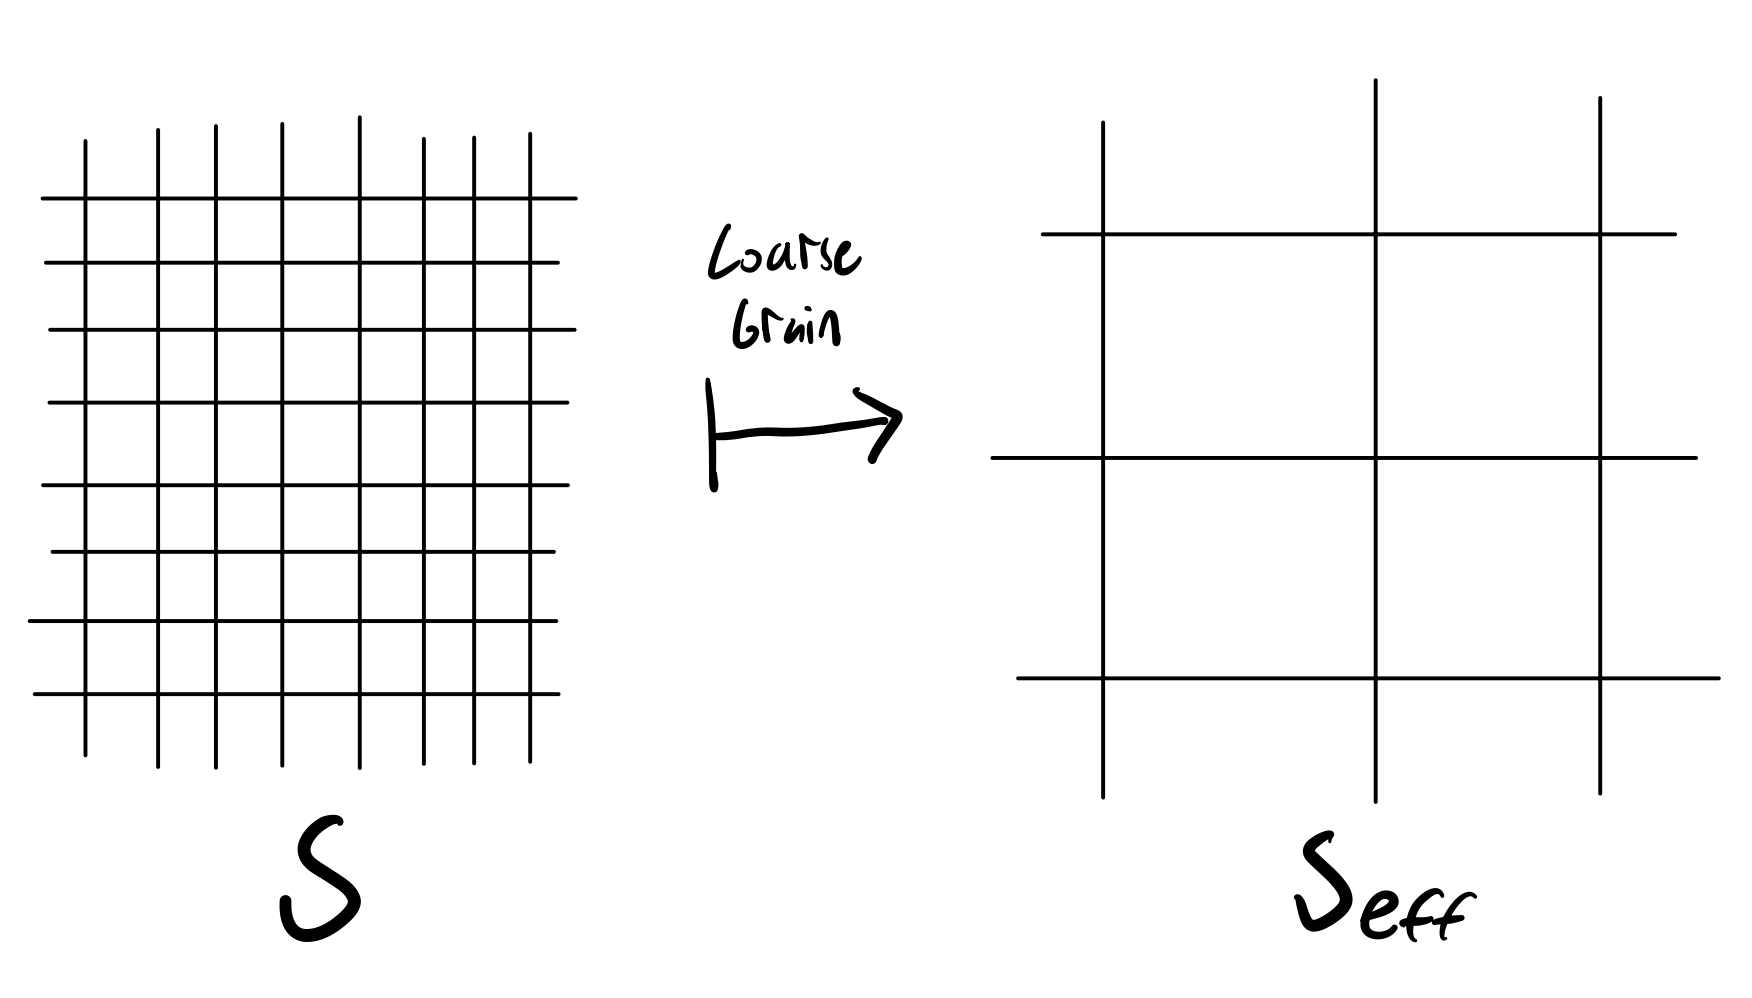 Coarse
Grain
S
Seff